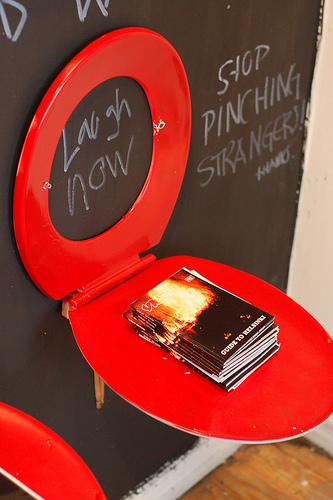 Laugh
now
STOP
PINCHING
STRANGERS!
thanks.
GUIDE TO HELSINKI